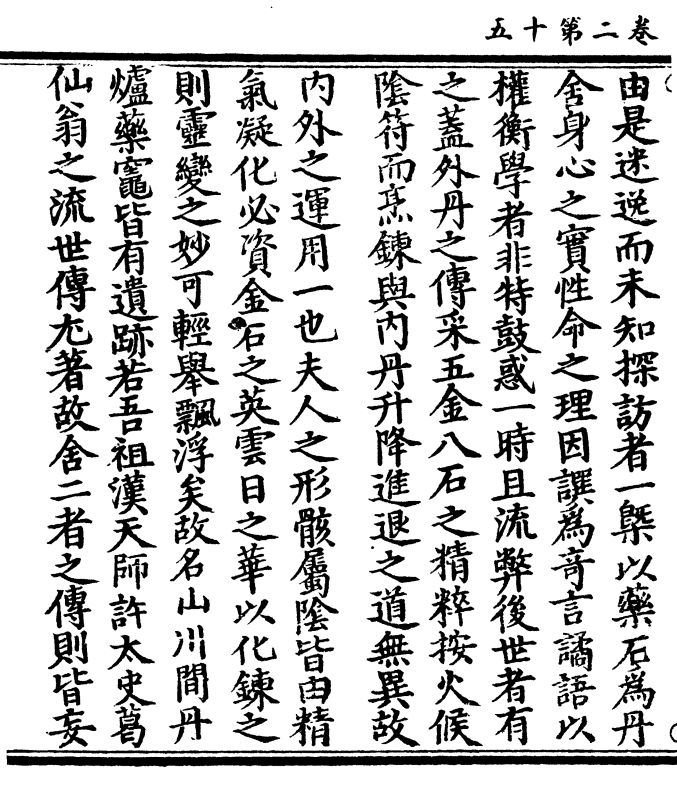 卷二第十五
由是迷逸而未知探訪者一槩以藥石為丹
舍身心之實性命之理因譔為奇言譎語以
權衡學者非特鼓惑一時且流弊後世者有
之蓋外丹之傳采五金八石之精粹按火候
隂符而烹鍊與内丹升降進退之道無異故
内外之運用一也夫人之形骸屬隂皆由精
氣凝化必資金石之英雲日之華以化鍊之
則靈變之妙可輕舉飄浮矣故名山川間丹
爐藥竈皆有遺跡若吾祖漢天師許太史葛
仙翁之流世傳尤著故舍二者之傳則皆妄